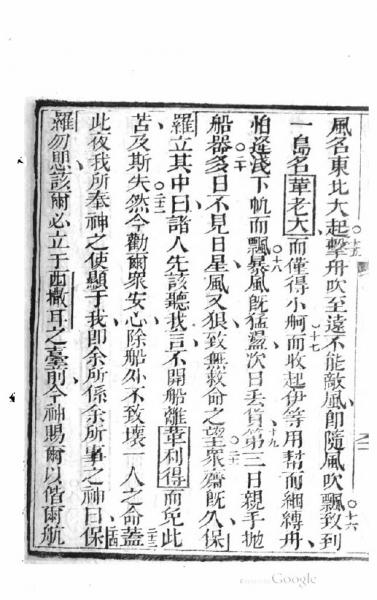 風名東北大起擊舟吹至遠不能敵風即隨風吹飄致到
一島名華老大而僅得小舸而收起伊等用幫而綑縛舟
怕逆淺下帆而飄暴風旣猛溫次日丟貨第三日親手抛
船器多日不見日星風又狼致無救命之望衆齋旣久保
羅立其中曰諸人先該聽我言不開船離華利得而免此
苦及斯失然今勸爾衆安心除船外不致壞一人之命蓋
此夜我所奉神之使顯于我即余所係余所事之神曰保
羅勿思該爾必立于西撒耳之臺前今神賜爾以偕爾航
○十五
○十六
○十七
○十八
○十九
○二十
○二一
○二二
○二三
Google